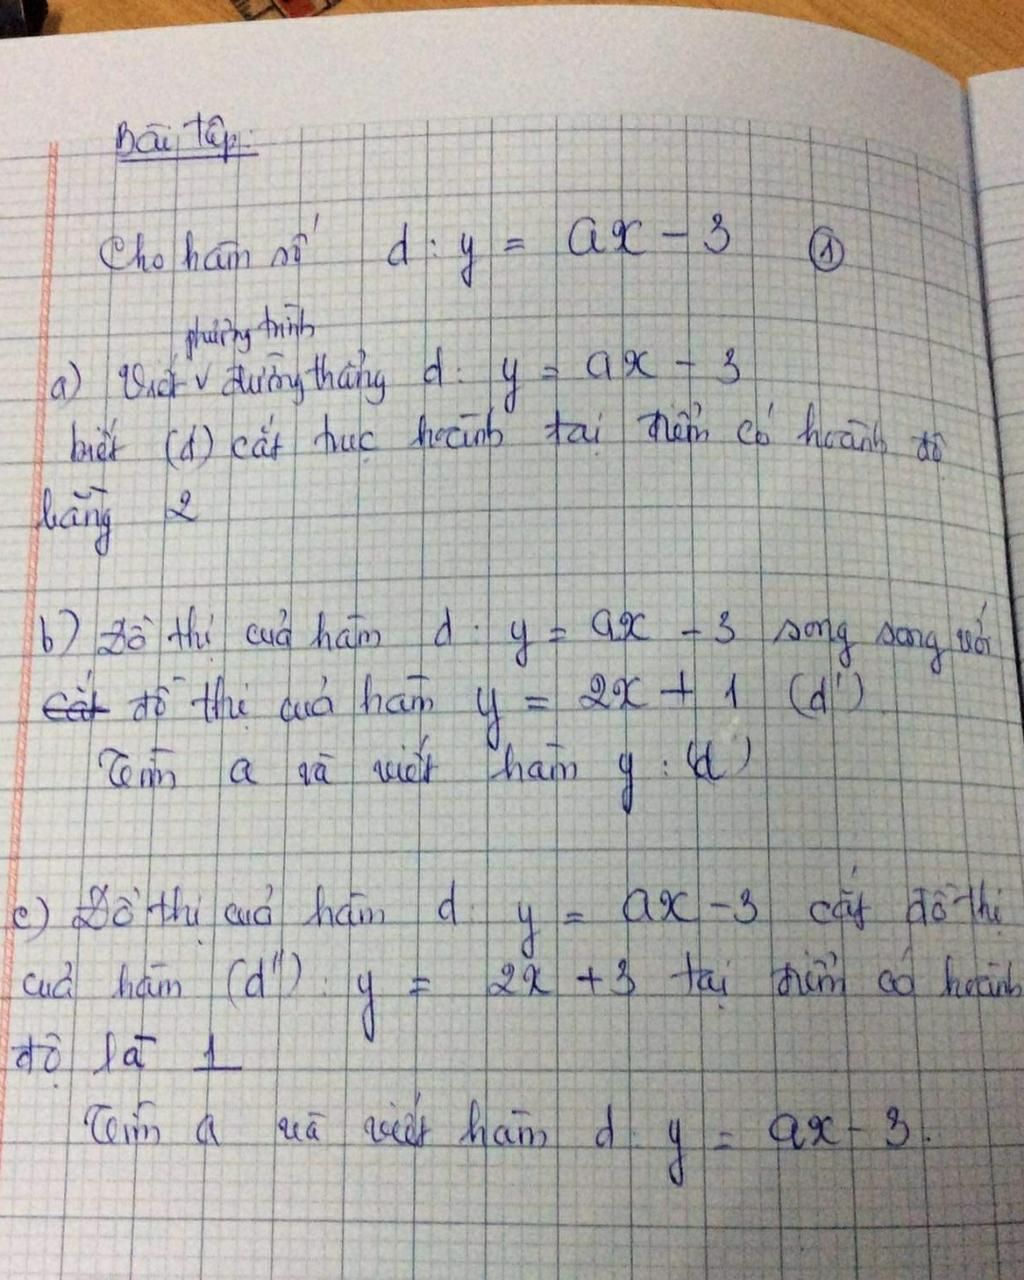 Bài tập:
Cho hàm số d : y = ax - 3 ①
phương trình
a) Viết v đường thẳng d : y = ax - 3
biết (d) cắt trục hoành tại điểm có hoành độ
bằng 2
b) Đồ thị của hàm d : y = ax - 3 song song với
cắt đồ thị của hàm y = 2x + 1 (d')
Tìm a và viết hàm y : (d)
c) Đồ thị của hàm d : y = ax - 3 cắt đồ thị
của hàm (d'') : y = 2x + 3 tại điểm có hoành
độ là 1
Tìm a và viết hàm d : y = ax - 3.